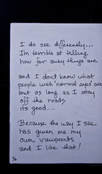 I do see differently...
I'm terrible at telling
how far away things are
and I don't kown what
people with normal eyes see
but as long as I stay
off the roads
its good...
Because the way I see
has given me my
own viewpoint
and I like that!